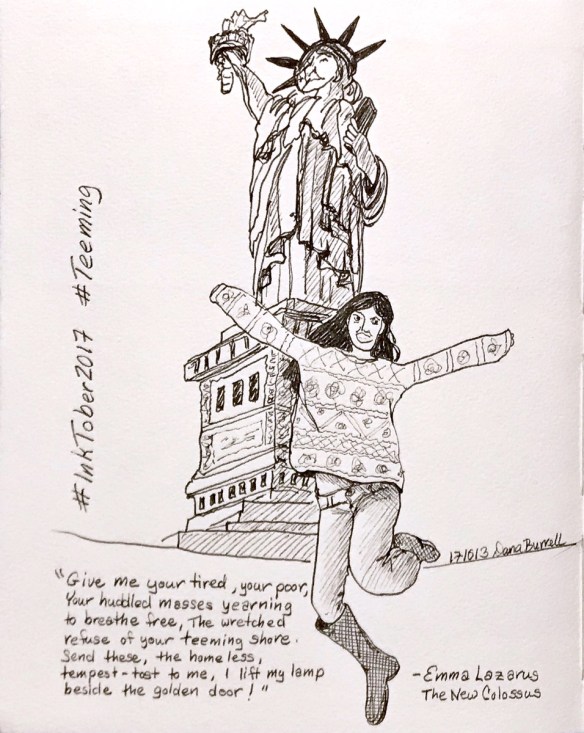 #InkTober2017 #Teeming
171013 Dana Burrell
"Give me your tired, your poor,
Your huddled masses yearning
to breathe free, The wretched
refuse of your teeming shore.
Send these, the homeless,
tempest-tost to me, I lift my lamp
beside the golden door!"
-Emma Lazarus
The New Colossus